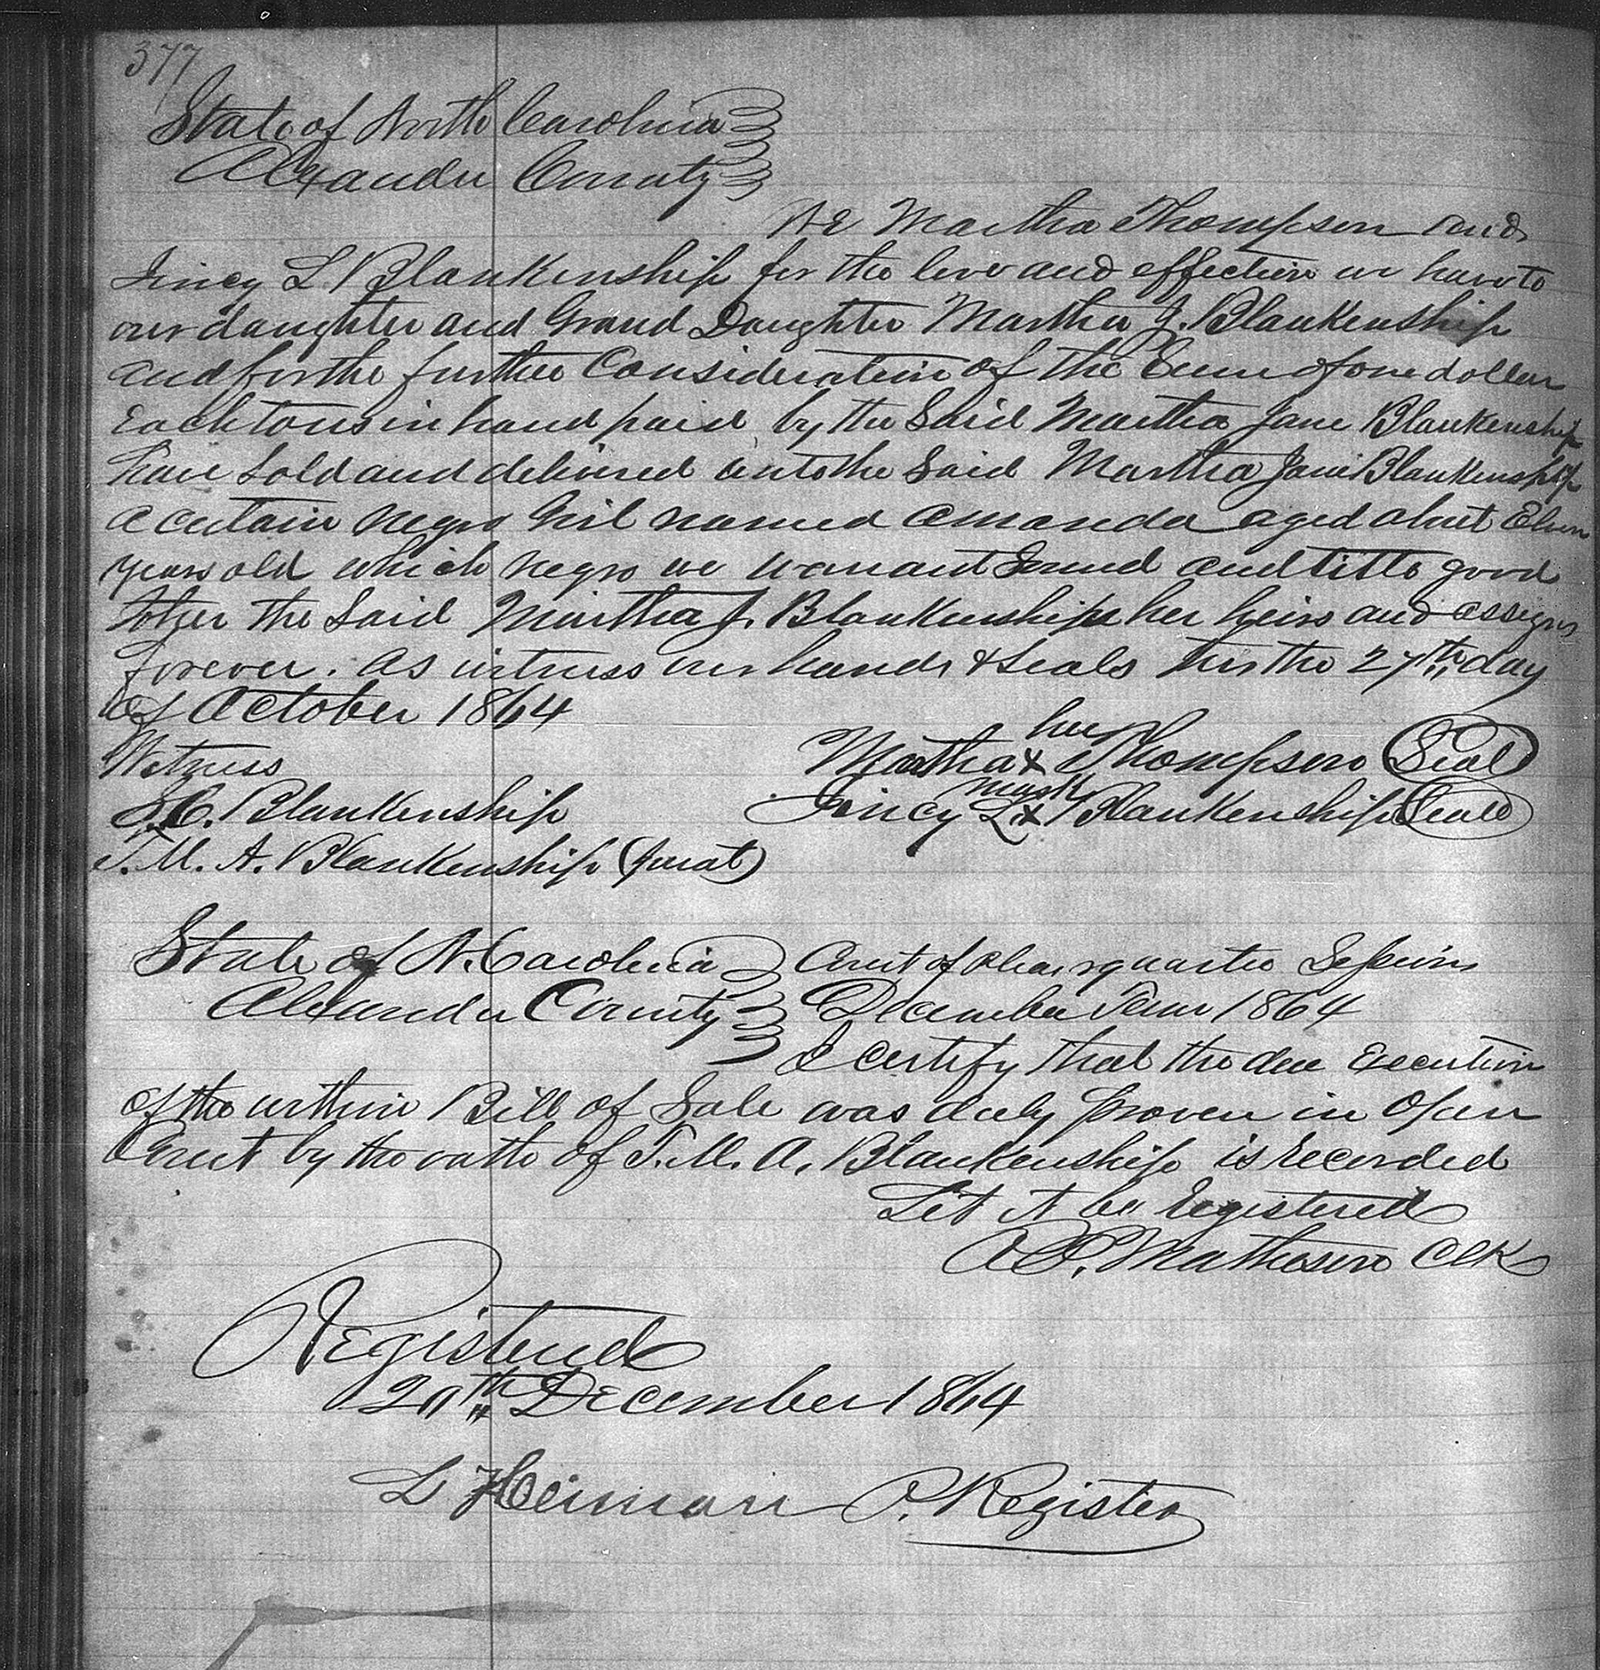 377
State of North Carolina
Alexander County
We Martha Thompson and
Jincy L Blankenship for the love and effection we have to
our daughter and Grand Daughter Martha J. Blankenship
and for the further Consideration of the Sum of one dollar
Each to us in hand paid by the Said Martha Jane Blankenship
have sold and delivered unto the Said Martha Jane Blankenship
a certain negro Girl named Amanda aged about Eleven
years old which negro we warrant Sound and title good
to her the Said Martha J. Blankenship her heirs and assigns
forever. As witness our hands & Seals this the 27th day
of October 1864
her
Witness Martha x Thompson Seal
mark
S.C. Blankenship Jincy L. x Blankenship Seal
T. M. A. Blankenship (Jurat)
State of N. Carolina Court of Pleas & quarter Sessions
Alexander County December Term 1864
I certify that the due Execution
of the within Bill of Sale was duly proven in Open
Court by the oath of T. M. A. Blankenship is recorded
Let it be registered
A C. Matheson Clk
Registered
20th December 1864
L Heiman P. Register